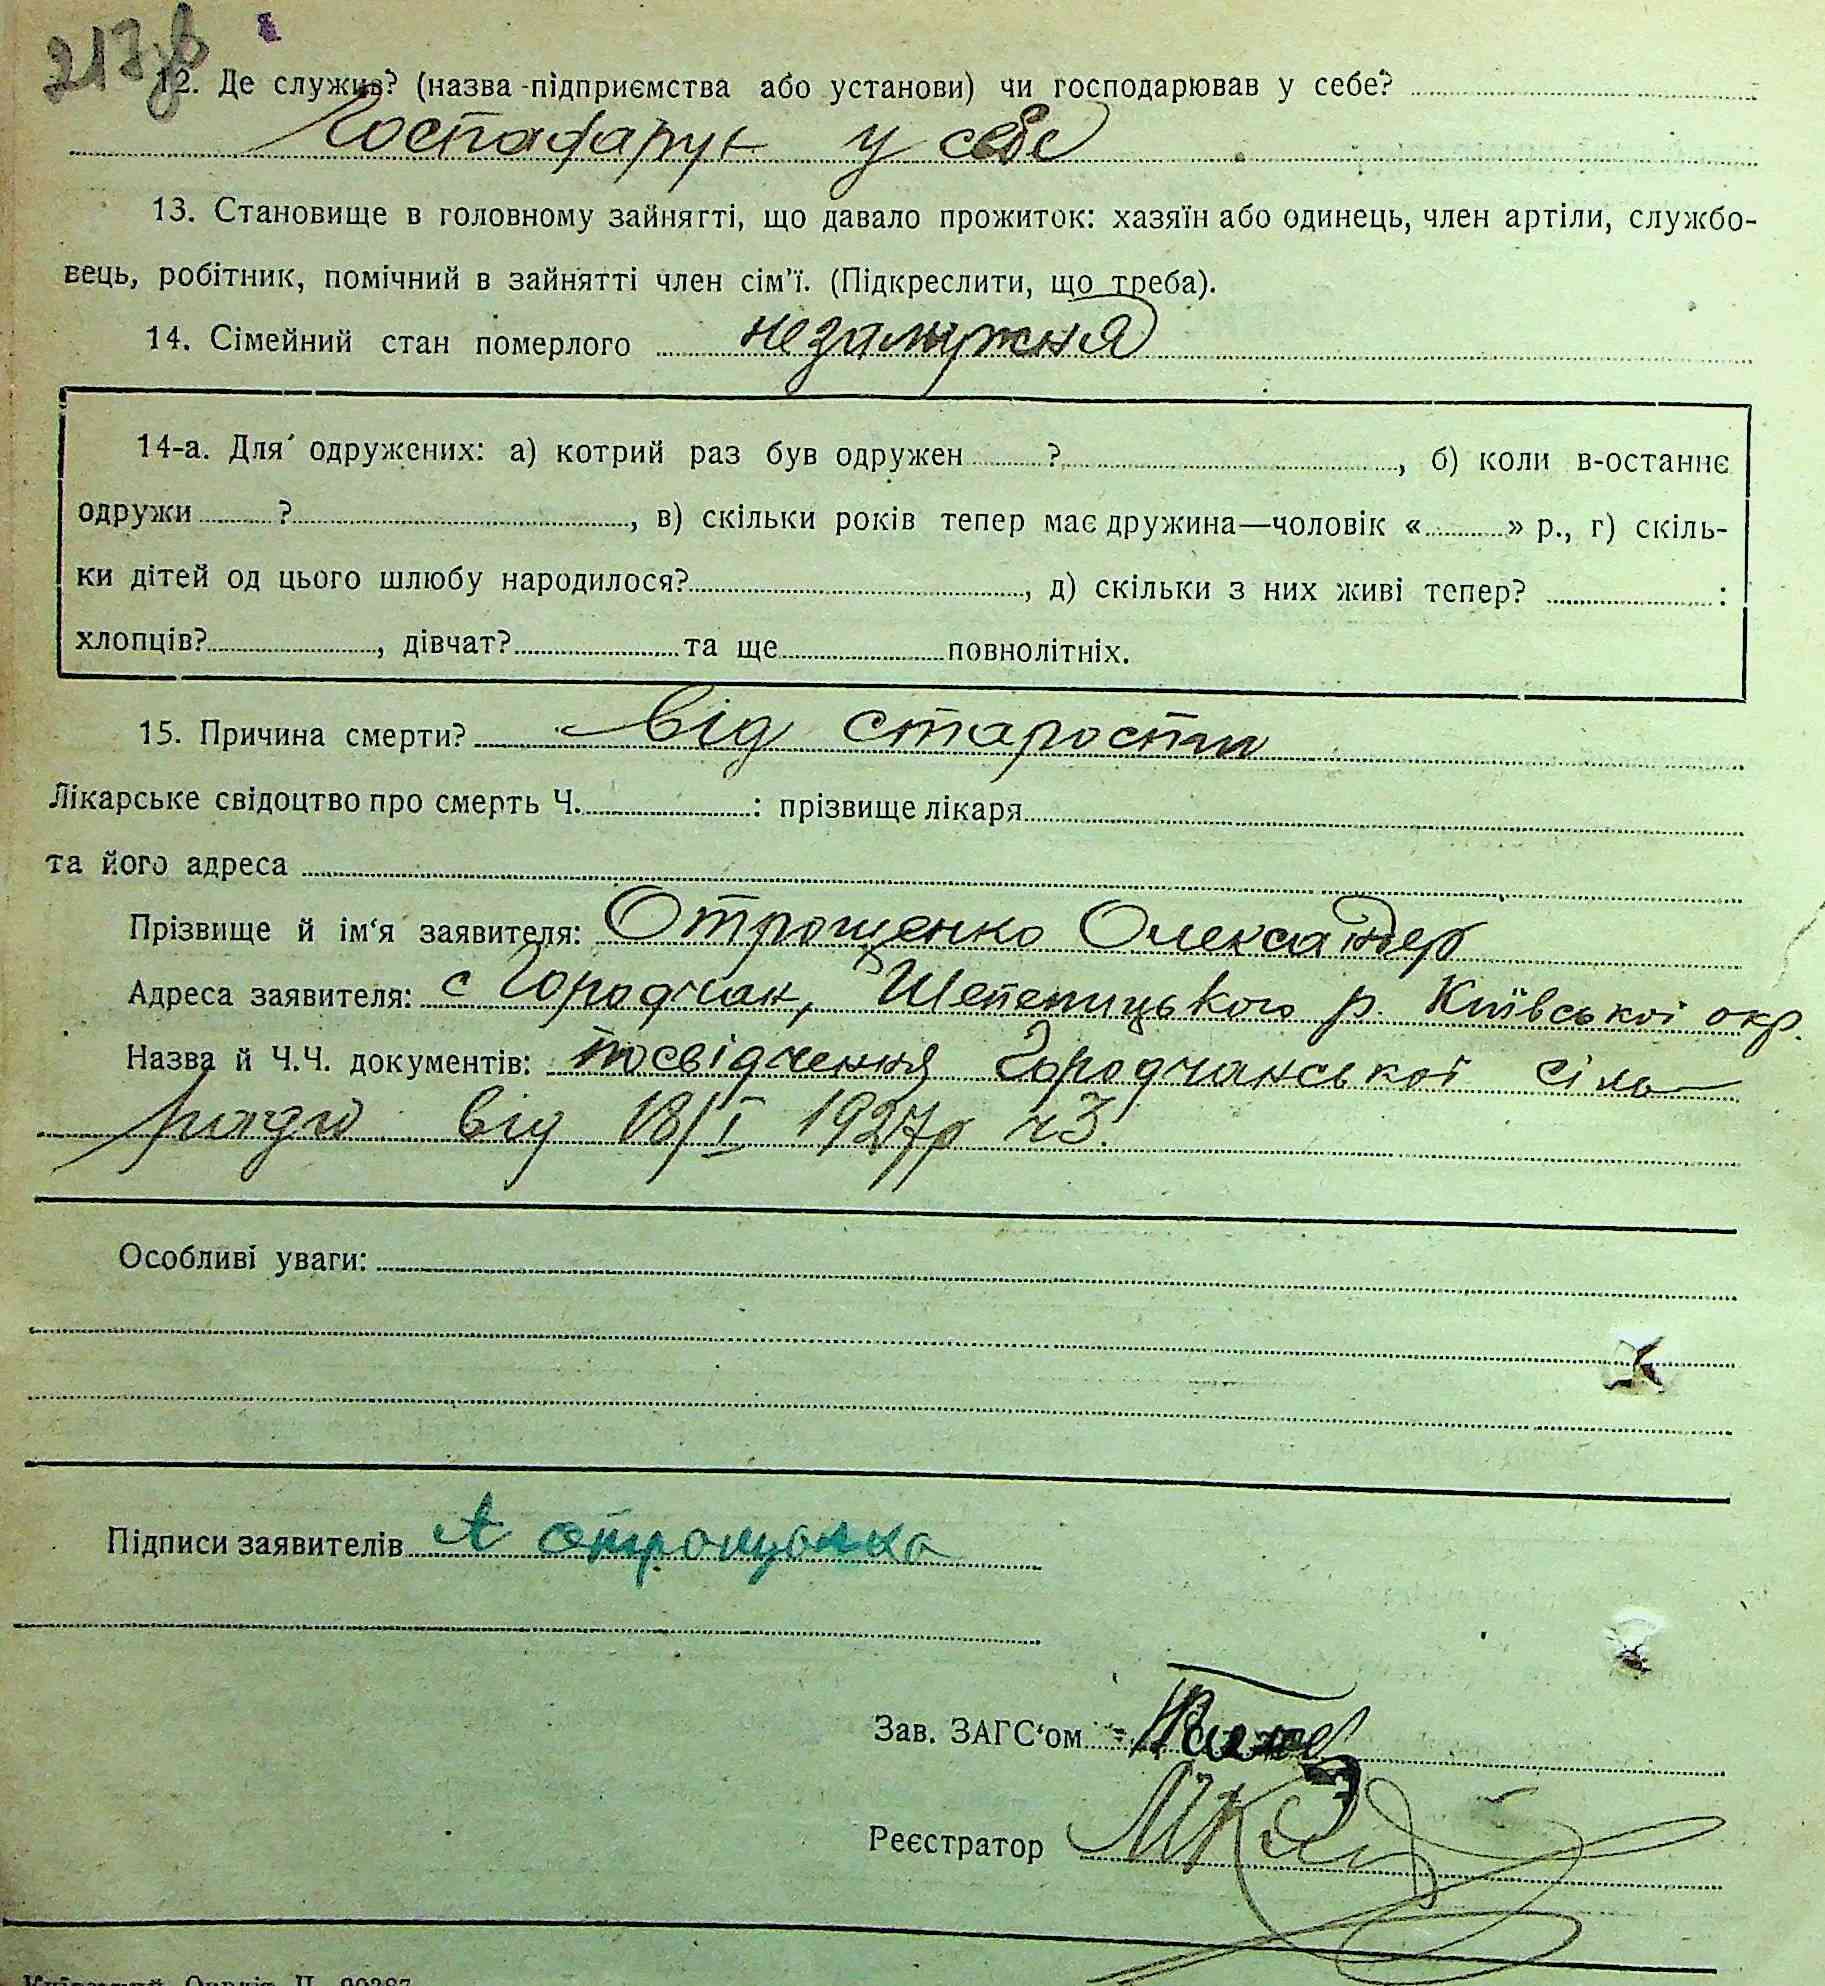 217зв
12. Де служив? (назва підприємства або установи) чи господарював у себе?
Госпадарує у себе
13. Становище в головному зайнятті, що давало прожиток: хазяїн або одинець, член артіли, службо-
вець, робітник, помічний в зайнятті член сім'ї. (Підкреслити, що треба).
14. Сімейний стан померлого незамужня
14-а. Для одружених: а) котрий раз був одружен ?, б) коли в-останнє
одружи ?, в) скільки років тепер має дружина—чоловік « » р., г) скіль-
ки дітей од цього шлюбу народилося?, д) скільки з них живі тепер? :
хлопців?, дівчат? та ще повнолітніх.
15. Причина смерти? від старости
Лікарське свідоцтво про смерть Ч. : прізвище лікаря
та його адреса
Прізвище й ім'я заявителя: Отрощенко Олександер
Адреса заявителя: с Городчан, Шепелицького р. Київської окр.
Назва й Ч.Ч. документів: посвідчення Городчанської сіль
ради від 18/I 1927р ч3.
Особливі уваги:
Підписи заявителів А Отрощенко
Зав. ЗАГС'ом
Реєстратор